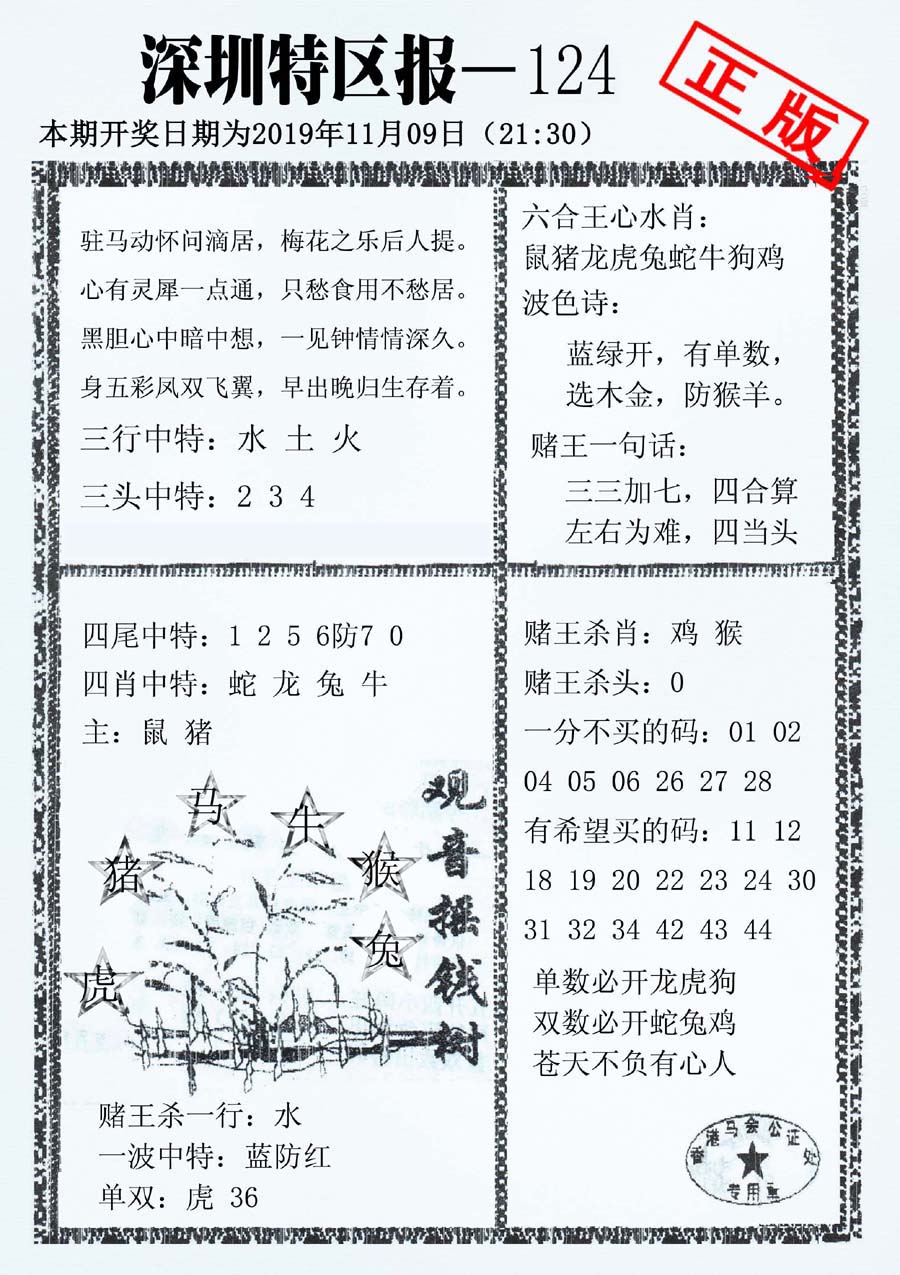 深圳特区报—124
正版
本期开奖日期为2019年11月09日（21:30）
驻马动怀问滴居，梅花之乐后人提。
心有灵犀一点通，只愁食用不愁居。
黑胆心中暗中想，一见钟情情深久。
身五彩凤双飞翼，早出晚归生存着。
三行中特：水 土 火
三头中特：2 3 4
六合王心水肖：
鼠猪龙虎兔蛇牛狗鸡
波色诗：
蓝绿开，有单数，
选木金，防猴羊。
赌王一句话：
三三加七，四合算
左右为难，四当头
四尾中特：1 2 5 6防7 0
四肖中特：蛇 龙 兔 牛
主：鼠 猪
马
牛
猪
猴
兔
虎
观音摇钱树
赌王杀一行：水
一波中特：蓝防红
单双：虎 36
赌王杀肖：鸡 猴
赌王杀头：0
一分不买的码：01 02
04 05 06 26 27 28
有希望买的码：11 12
18 19 20 22 23 24 30
31 32 34 42 43 44
单数必开龙虎狗
双数必开蛇兔鸡
苍天不负有心人
香港马会公证处
专用章